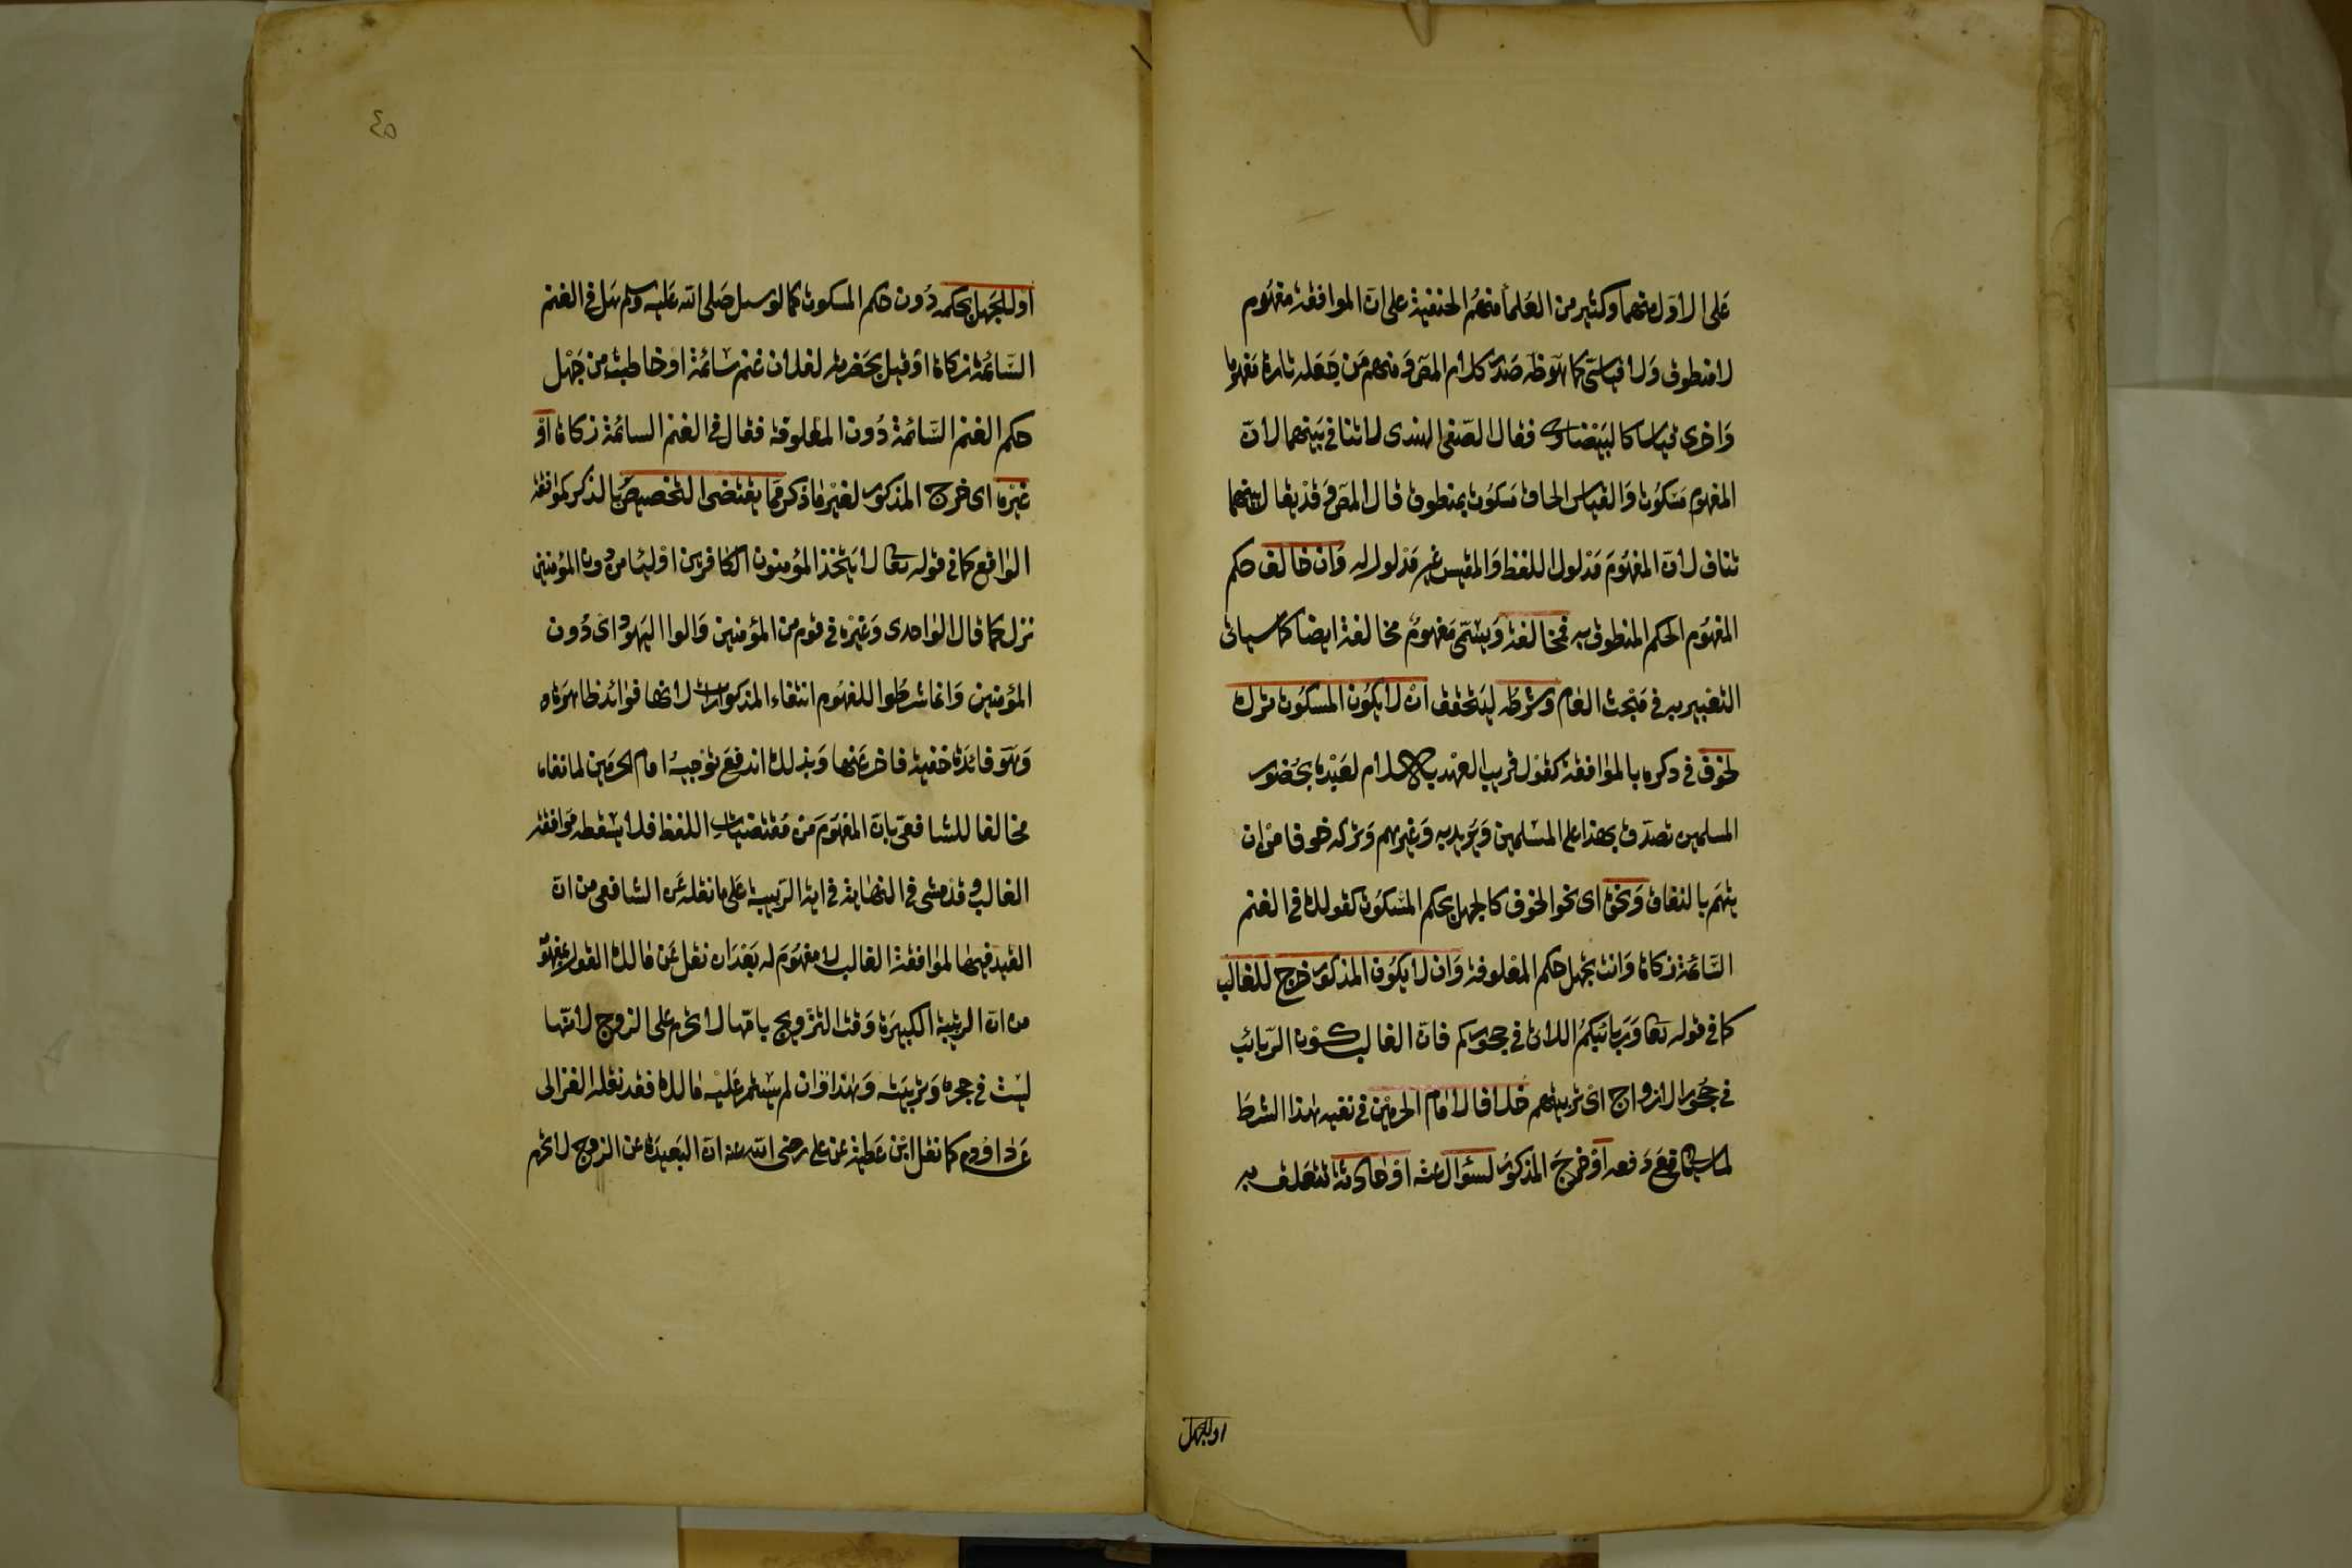 على الاول منهما وكثير من العلماء منهم الحنفية على ان الموافقة مفهوم
لا منطوق ولا قياسي كما هو ظ صدر كلام المص ومنهم من جعله تارة مفهوما
واخرى قياسا كالبيضاوي فقال الصفى الهندى لا تنافى بينهما لان
المفهوم مسكوت والقياس الحاق مسكوت بمنطوق قال المص وقد يقال بينهما
تناف لان المفهوم مدلول اللفظ والمقيس غير مدلول له وان خالف حكم
المفهوم الحكم المنطوق به فمخالفة ويسمى مفهوم مخالفة ايضا كما سياتى
التعبير به فى مبحث العام وشرطه ليتحقق ان لا يكون المسكوت ترك
لخوف فى ذكره بالموافقة كقول قريب العهد بالاسلام لعبده بحضور
المسلمين تصدق بهذا على المسلمين ويريد به وغيرهم وتركه خوفا من ان
يتهم بالنفاق ونحوه اى نحو الخوف كالجهل بحكم المسكوت كقولك فى الغنم
السائمة زكاة وانت تجهل حكم المعلوفة وان لا يكون المذكور خرج للغالب
كما فى قوله تعا وربائبكم اللاتى فى حجوركم فان الغالب كون الربائب
فى حجور الازواج اى تربيتهم خلافا لامام الحرمين فى نفيه هذا الشرط
لما سياتى مع دفعه او خرج المذكور لسؤال عنه او حادثة تتعلق به
اوللجهل
٤٥
اوللجهل بحكمه دون حكم المسكوت كما لو سئل صلى الله عليه وسلم هل فى الغنم
السائمة زكاة او قيل بحضرته لفلان غنم سائمة او خاطب من جهل
حكم الغنم السائمة دون المعلوفة فقال فى الغنم السائمة زكاة او
غيره اى خرج المذكور لغير ما ذكر مما يقتضى التخصيص بالذكر كموافقة
الواقع كما فى قوله تعا لا يتخذ المؤمنون الكافرين اوليا من دون المؤمنين
نزل كما قال الواحدى وغيره فى قوم من المؤمنين والوا اليهود اى دون
المؤمنين وانما شرطوا للمفهوم انتفاء المذكورات لانها فوائد ظاهرة
وهو فائدة خفية فاخر عنها وبذلك اندفع توجيه امام الحرمين لما نفاه
مخالفا للشافعى بان المفهوم من مقتضيات اللفظ فلا يسقطه موافقة
الغالب وقد مشى فى النهاية فى اية الربيبة على ما نقله عن الشافعى من ان
القيد فيها لموافقة الغالب لا مفهوم له بعد ان نقل عن مالك القول بمفهومه
من ان الربيبة الكبيرة وقت التزويج بامها لا تحرم على الزوج لانها
ليست فى حجره وتربيته وهذا وان لم يستمر عليه مالك فقد نقله الغزالى
عن داود كما نقل ابن عطية عن على رضى الله عنه ان البعيدة عن الزوج لا تحرم